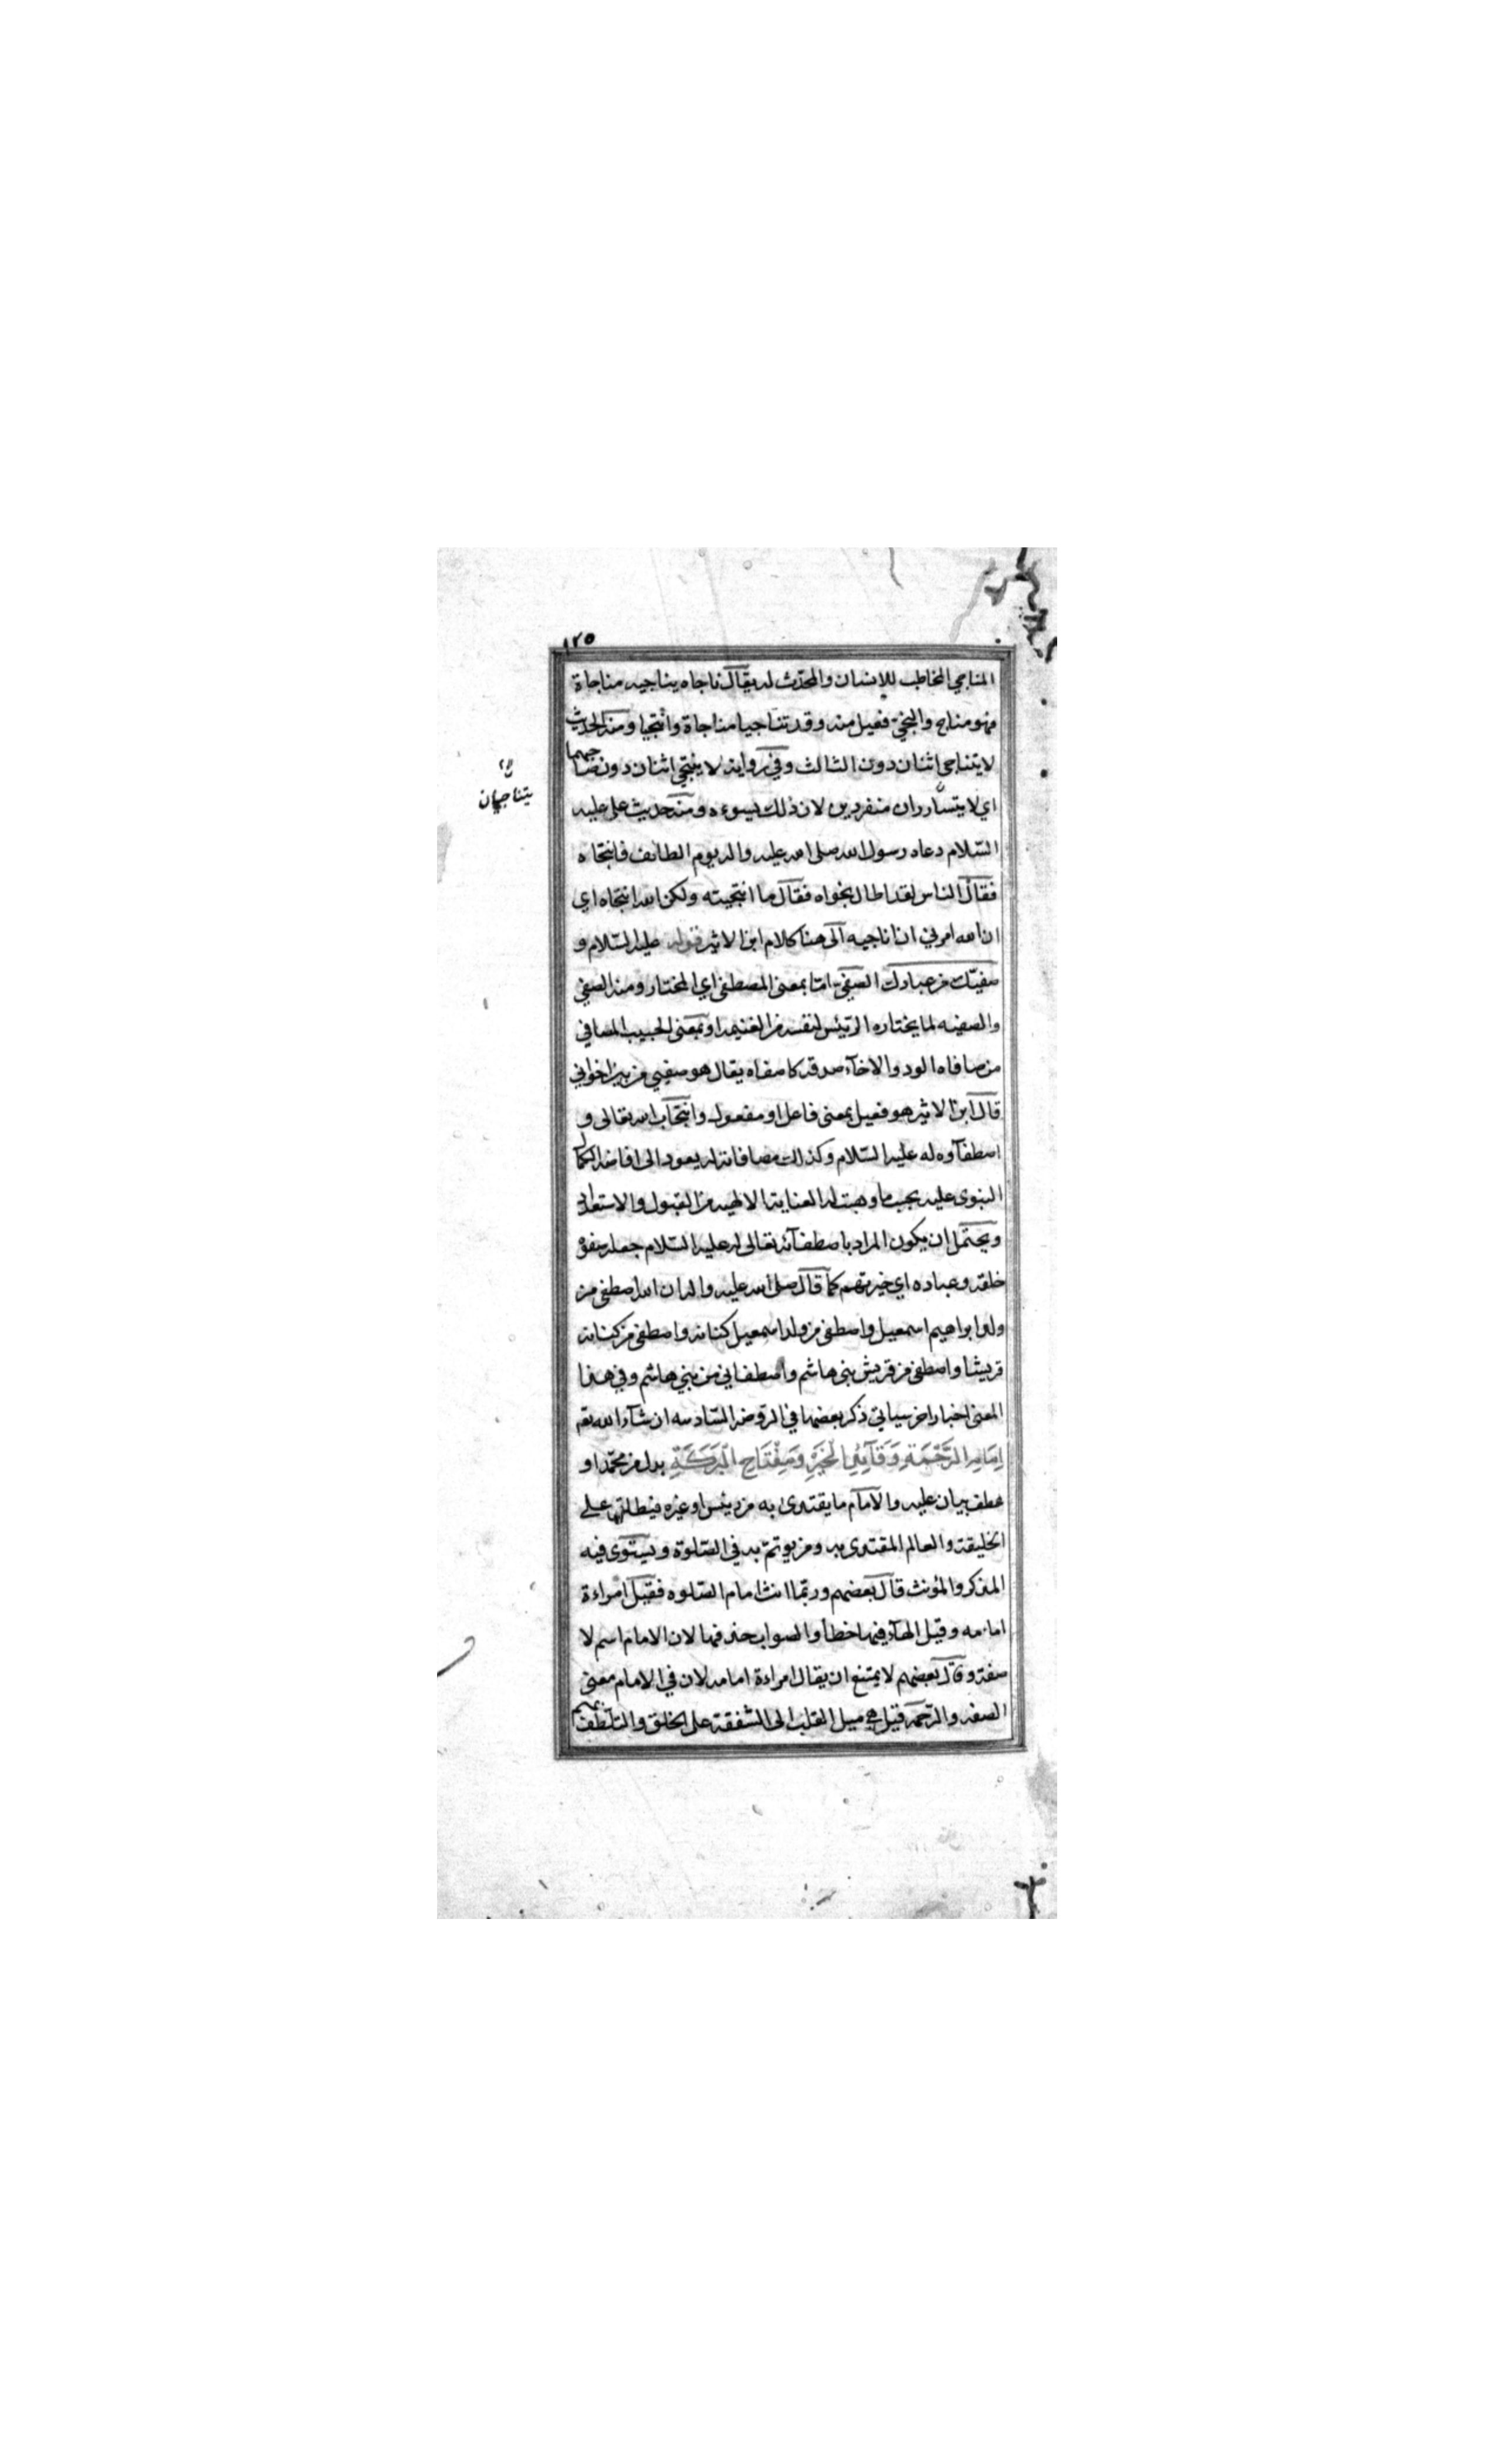 ١٢٥
المناجي المخاطب للإنسان والمحدّث له يقال ناجاه يناجيه مناجاة
فهو مناج والنجيّ فعيل منه وقد تناجيا مناجاة وانتجيا ومنه الحديث
لا يتناجى اثنان دون الثالث وفي رواية لا ينتجي اثنان دون صاحبهما
اي لا يتسارران منفردين لان ذلك يسوءه ومنه حديث علي عليه
السّلام دعاه رسول الله صلى الله عليه واله يوم الطائف فانتجاه
فقال الناس لقد اطال نجواه فقال ما انتجيته ولكن الله انتجاه اي
ان الله امرني ان اناجيه الى هنا كلام ابن الاثير قوله عليه السّلام و
صفيّك من عبادك الصفيّ امّا بمعنى المصطفى اي المختار ومنه الصفي
والصفيه لما يختاره الرئيس لنفسه من الغنيمه او بمعنى الحبيب المصافي
من صافاه الود والاخآء صدقه كاصفاه يقال هو صفيي من بين اخواني
قال ابن الاثير هو فعيل بمعنى فاعل او مفعول وانتجاب الله تعالى و
اصطفآوه له عليه السّلام وكذلك مصافاته له يعود الى افاضة الكمال
النبوى عليه بحسب ما وهبت له العناية الالهيه من القبول والاستعداد
ويحتمل ان يكون المراد باصطفآئه تعالى له عليه السّلام جعله صفوة
خلقه وعباده اي خيرتهم كما قال صلى الله عليه واله ان الله اصطفى من
ولد ابراهيم اسمعيل واصطفى من ولد اسمعيل كنانه واصطفى من كنانه
قريشا واصطفى من قريش بني هاشم واصطفاني من بني هاشم وفي هذا
المعنى اخبار اخر سياتي ذكر بعضها في الروضه السّادسه ان شآء الله تعم
اِمَامِ الرَّحْمَةِ وَقَآئِدِ الْخَيْرِ وَمِفْتَاحِ الْبَرَكَةِ بدل من محمّد او
عطف بيان عليه والامام ما يقتدى به من رئيس او غيره فيطلق على
الخليفة والعالم المقتدى به ومن يوتمّ به في الصّلوة ويستوى فيه
المذكر والمؤنث قال بعضهم وربّما انث امام الصّلوه فقيل امراءة
امامه وقيل الهآء فيها خطأ والصواب حذفها لان الامام اسم لا
صفة وقال بعضهم لا يمتنع ان يقال امراءة امامه لان في الامام معنى
الصفه والرّحمه قيل هي ميل القلب الى الشفقة على الخلق والتلطّف بهم
يتناجيان